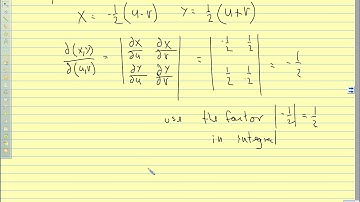 x = -1/2 (u-v)    y = 1/2 (u+v)
∂(x,y)/∂(u,v) = | ∂x/∂u ∂x/∂v ; ∂y/∂u ∂y/∂v | = | -1/2 1/2 ; 1/2 1/2 | = -1/2
use the factor |-1/2| = 1/2
in integral